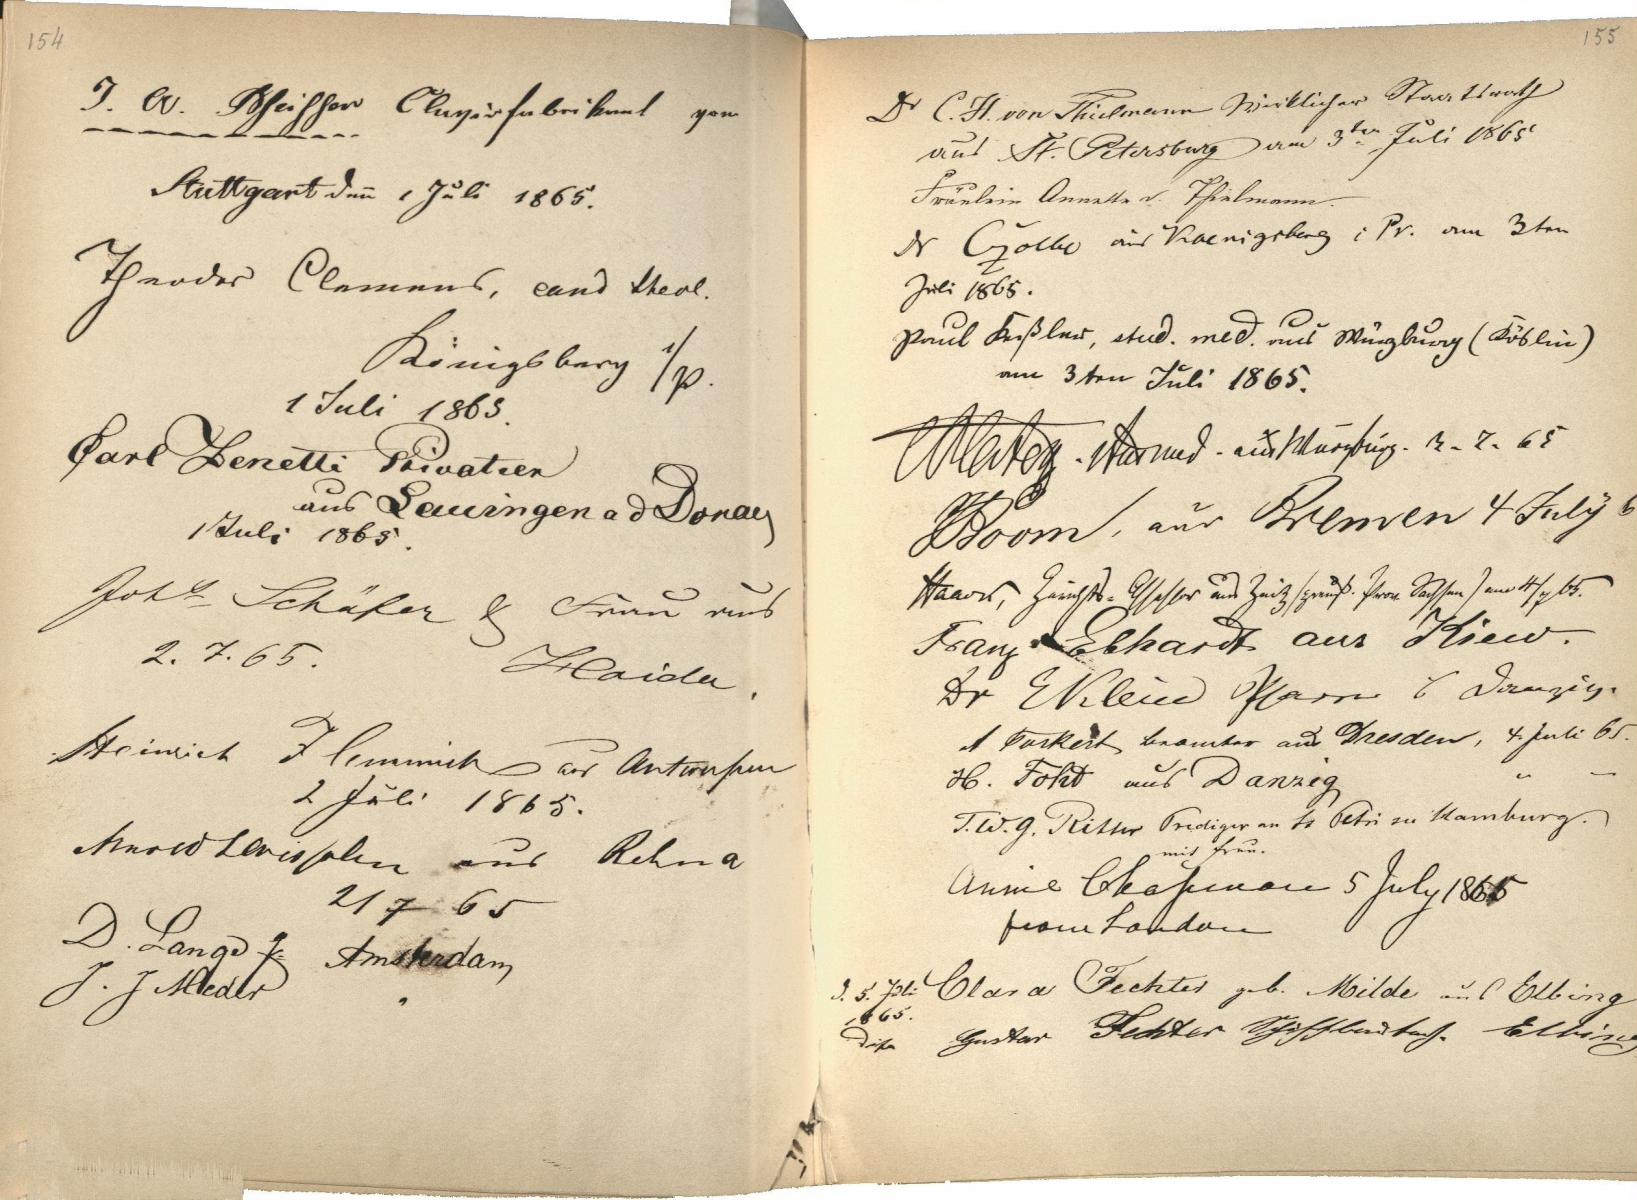 154
J. A. Pfeiffer Clavierfabrikant von
Stuttgart den 1 Juli 1865.
Theodor Clemens, cand theol.
Königsberg i/p.
1 Juli 1865.
Carl Zenetti Privatier
aus Lauingen a d Donau
1 Juli 1865.
Joh Schäfer & Frau aus
2. 7. 65. Haida.
Heinrich Flemmich aus Antwerpen
2 Juli 1865.
aus Rehna
2/7 65
D. Lange Jr Amsterdam
J. J Meder "
155
Dr C. H. von Thielmann Wirklicher Staatsrath
aus St. Petersburg am 3ten Juli 1865
Fräulein Annette v. Thielmann.
Dr Czolbe aus Koenigsberg i Pr. am 3ten
Juli 1865.
Paul Keßler, stud. med. aus Würzburg (Köslin)
am 3ten Juli 1865.
med. aus Würzburg. 7. 65
aus Bremen 4 July 6
Gerichts-Assessor aus Zeitz (preuß. Prov. Sachsen) am 4/7 65.
Franz Ekhardt aus Kiew.
Dr E Klein Danzig.
Beamter aus Dresden, 4 Juli 65.
H. Foht aus Danzig " –
T. W. G. Ritter Prediger an St Petri zu Hamburg.
mit Frau.
Annie Chapman 5 July 1865
from London
d. 5. Juli Clara Fechter geb. Milde aus Elbing
1865.
dito Gustav Fechter Elbing